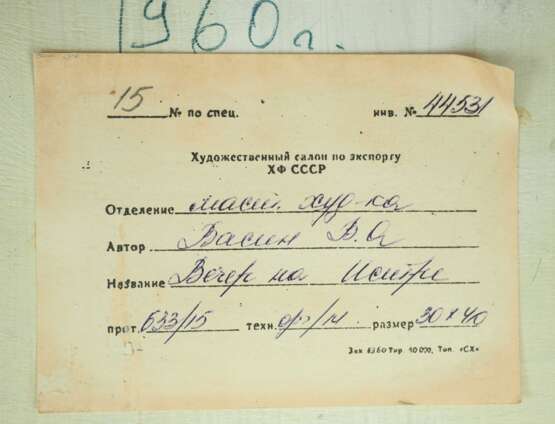 1960г.
15 № по спец. инв. № 44531
Художественный салон по экспорту
ХФ СССР
Отделение маст. худ-ка
Автор Васин В.А
Название Вечер на Истре
прот. 633/15 техн. ф/м размер 30 х 40
Зак 6360 Тир. 10 000, Тип. «СХ»